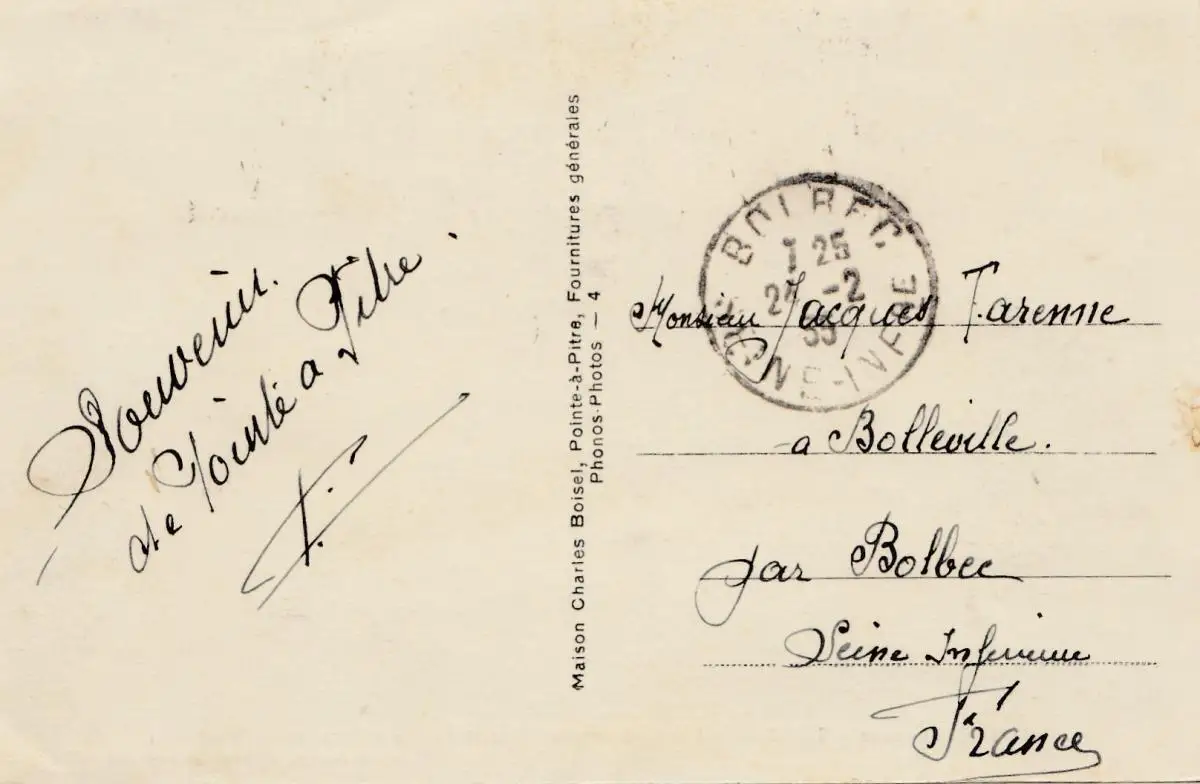 Souvenir.
de Pointe a Pitre.
Maison Charles Boisel, Pointe-à-Pitre, Fournitures générales
Phonos-Photos — 4
BOLBEC
25
-2
SEINE-INFRE
Monsieur Jacques Farenne
a Bolleville.
par Bolbec
Seine Inferieure
France